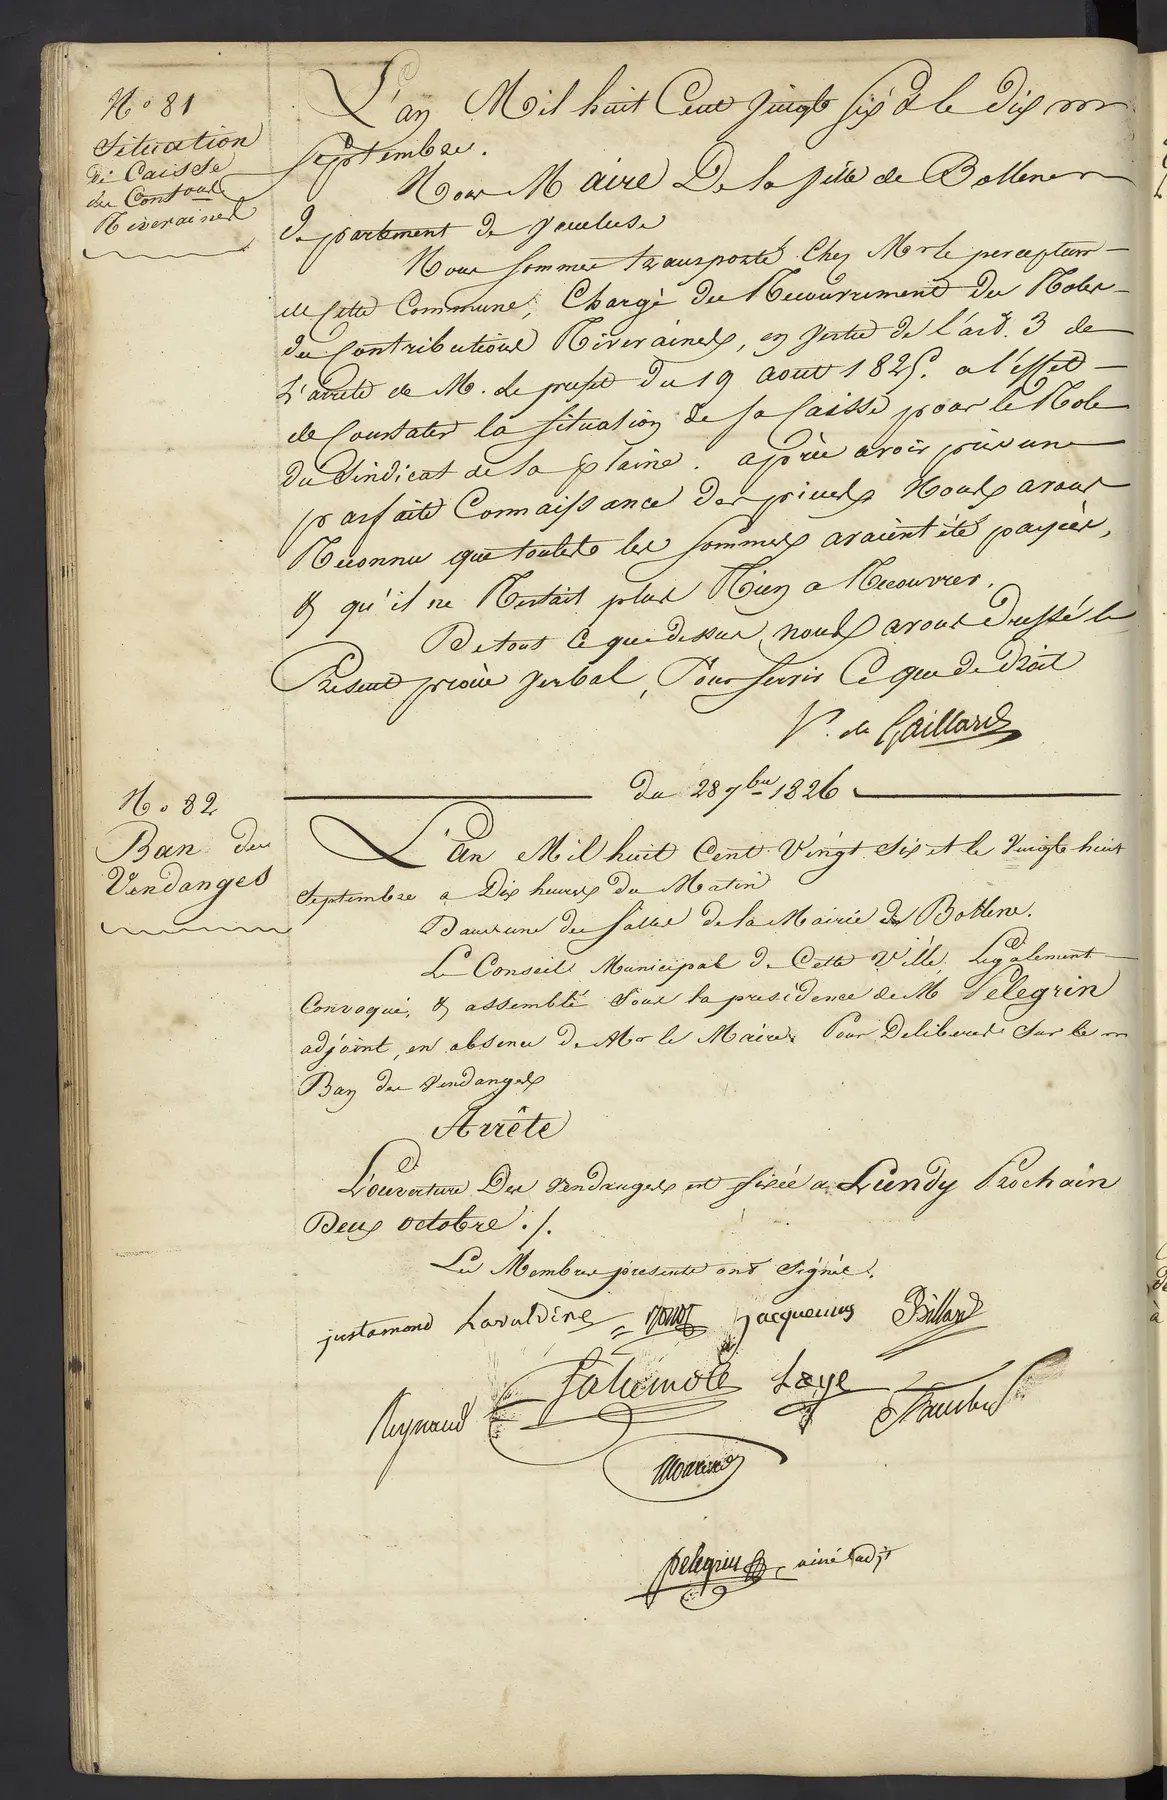 N° 81
Situation
de Caisse
des Contons
Riveraines
L'an Mil huit Cent vingt six & le dix
septembre.
Nous Maire De la ville de Bollene
departement de vaucluse
Nous sommes transporté Chez Mr le percepteur
de Cette Commune, Chargé du Recouvrement des Roles
des Contributions Riveraines, en vertu de l'art. 3 de
L'arrêté de M. Le prefet du 19 aout 1825. a l'effet
de Constater la situation de sa Caisse pour le Role
du Sindicat de la plaine. après avoir pris une
parfaite Connaissance des pieces Nous avons
Reconnu que toutes les sommes avaient été payées,
& qu'il ne Restait plus Rien a Recouvrer.
De tout Ce que dessus, nous avons Dressé le
Present procès verbal, Pour servir Ce que de Droit
V. de Gaillard
N° 82
Ban des
Vendanges
du 28 7bre 1826
L'an Mil huit Cent Vingt Six et le Vingt huit
Septembre a Dix heures Du Matin
Dans une des salles de la Mairie de Bollene.
Le Conseil Municipal de Cette Ville Legalement
Convoqué, & assemblé sous la presidence de M Pelegrin
adjoint, en absence de Mr le Maire. Pour Deliberer Sur le
Ban des Vendanges
Arrête
L'ouverture Des Vendanges est fixée a Lundy Prochain
Deux octobre ./.
Les Membres presents ont Signé.
justamond Lavaldene Jacquemus Billard
Reynaud Laye
pelegrin ainé adjt